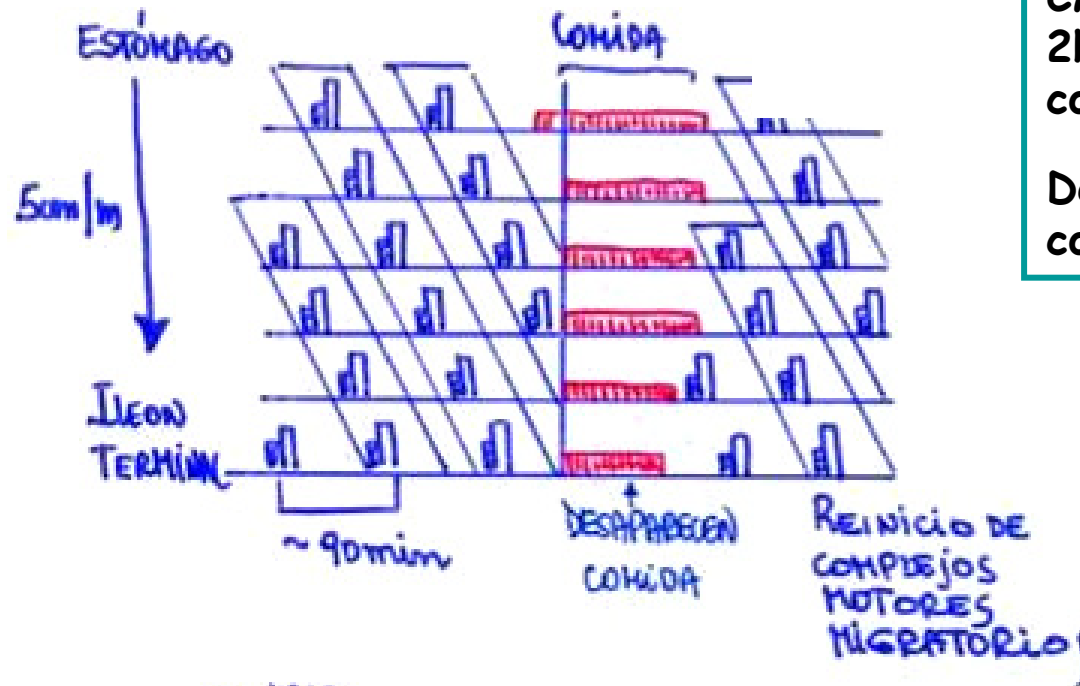 ESTÓMAGO
COMIDA
5cm/m
ILEON
TERMINAL
~90min
DESAPARECEN
COMIDA
REINICIO DE
COMPLEJOS
MOTORES
MIGRATORIO
2
co
co